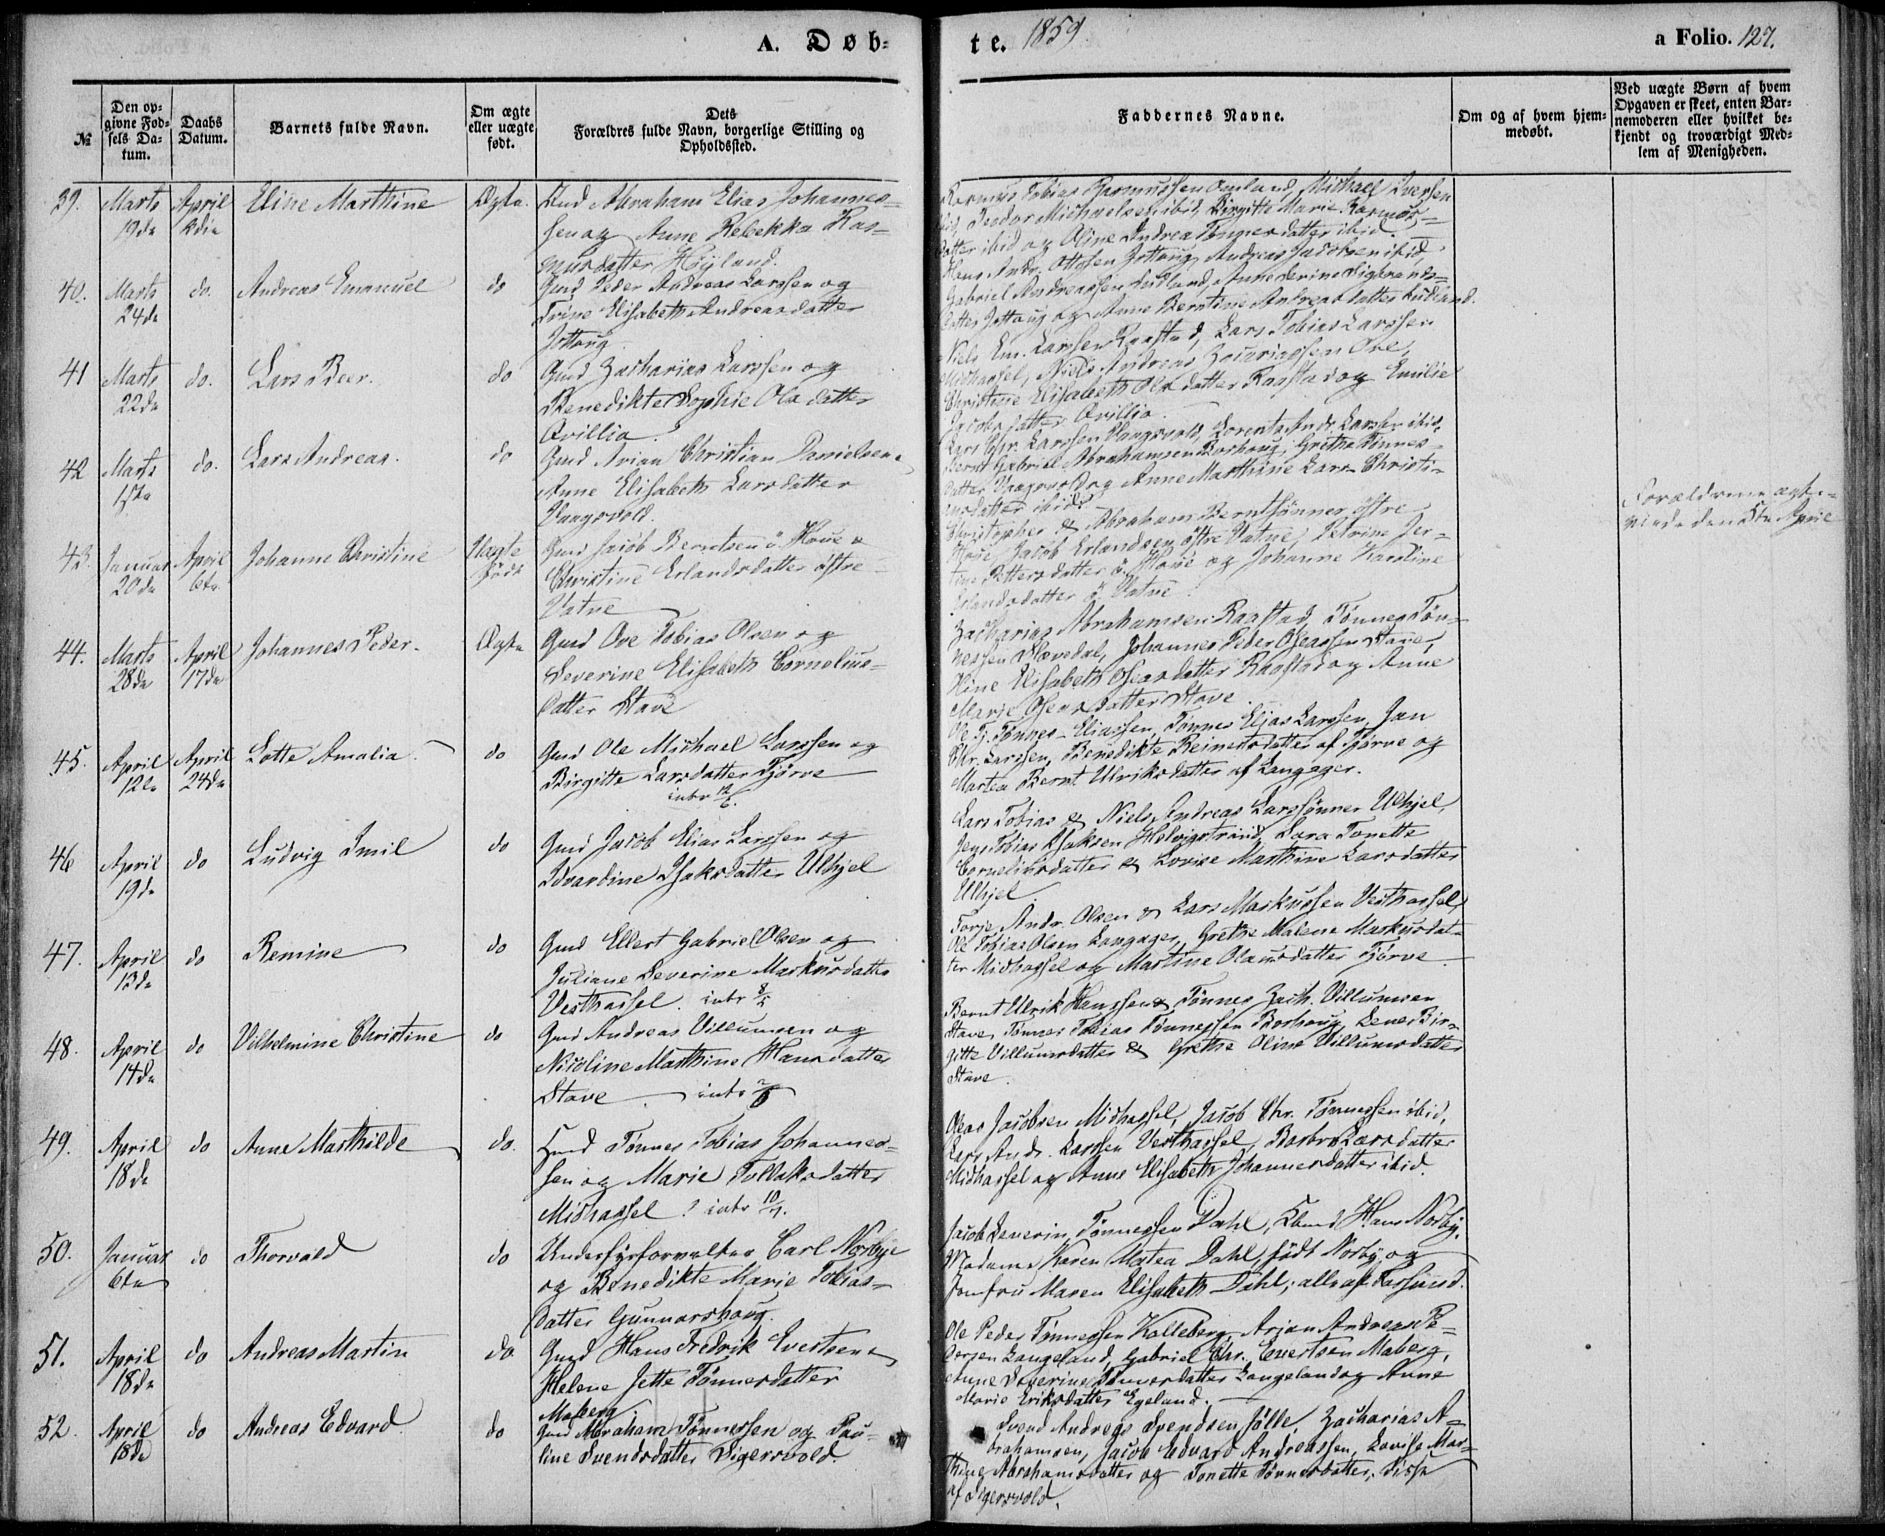 A. Døb-
te. 1859
a Folio. 127.
№
Den op-
givne Fød-
sels Da-
tum.
Daabs
Datum.
Barnets fulde Navn.
Om ægte
eller uægte
født.
Dets
Forældres fulde Navn, borgerlige Stilling og
Opholdssted.
Faddernes Navne.
Om og af hvem hjem-
medøbt.
Ved uægte Børn af hvem
Opgaven er skeet, enten Bar-
nemoderen eller hvilket be-
kjendt og troværdigt Med-
lem af Menigheden.
39. Marts 19de April Eline Marthine Ægte
Abraham Elias Johannes-
sen og Anne Rebekka Ras-
musdatter Høyland.
Rasmus Tobias Rasmussen Omland, Michael Iversen
ibid, Teodor Michaelsen ibid, Birgitte Marie Rasmus-
datter ibid og Oline Andrea Tønnesdatter ibid.
40. Marts 24de do. Andreas Emanuel do
Gmd Peder Andreas Larssen og
Trine Elisabeth Andreasdatter
Jøttoug
Hans Andr. Ottosen Jøttoug, Andreas Jacobsen ibid,
Gabriel Andreassen Lunland, Anne Serine Sigbrands-
datter Jøttoug og Anne Berntine Andreasdatter
41 Marts 22de do. Lars Beer. do
Gmd Zacharias Larssen og
Benedikte Sophie Oladatter
Qvillio.
Niels Em. Larssen Raastad, Lars Tobias Larssen
Midhassel, Niels Andreas Zacariassen Ore,
Christine Elisabeth Oladatter Raastad og Emilie
Jacobsdatter Qvillio.
42 Marts 15de do. Lars Andreas. do
Gmd Arian Christian Danielsen &
Anne Elisabeth Larsdatter
Vaagsvold.
Lars Chr. Larssen Vaagsvold, Lorents Andr. Larssen ibid,
Bernt Gabriel Abrahamsen Borhoug, Grethe Tønnes-
datter Vaagsvold og Anne Marthine Lars Christi-
ansdatter ibid.
43. Januar 20de April 6te Johanne Christine Uægte født
Gmd Jacob Berntsen ö. Haue &
Christine Erlandsdatter østre
Vatne
Christopher & Abraham Berntsønner østre
Haue, Jacob Erlandsen østre Vatne, Petrine Jer-
tine Pettersdatter ö. Haue og Johanne Karoline
Erlandsdatter ö Vatne
Forældrene ægte-
viede den 5te April
44. Marts 28de April 17de Johannes Peder. Ægte
Gmd Ove Tobias Olsen og
Severine Elisabeth Cornelius-
datter Stave
Zacharias Abrahamsen Raastad, Tønnes Tøn-
nessen Slevedal, Johannes Peder Oseassen Stave,
Oline Elisabeth Oseasdatter Raastad og Anne
Marie Oseasdatter Stave
45. April 12te April 24de Lotte Amalia do
Gmd Ole Michael Larssen og
Birgitte Larsdatter Tjørve
intr 12/6.
Ole Tj. Tønnes Eliassen, Tønnes Elias Larssen, Jan
Chr. Larssen, Benedikte Reinertsdatter af Tjørve og
Martea Bernt Ulriksdatter af Langager.
46 April 19de do Ludvig Emil do
Gmd Jacob Elias Larssen og
Edvardine Isaksdatter Ulhjel
Lars Tobias & Niels Andreas Larssønner Ulhjel,
Jens Tobias Isaksen Helvigstrand, Lara Tonette
Corneliusdatter & Lovise Marthine Larsdatter
Ulhjel
47. April 13de do Remine do
Gmd Ellert Gabriel Olsen og
Juliane Severine Markusdatter
Vesthassel. intr 8/5
Torje Andr. Olsen & Lars Markussen Vesthassel,
Ole Tobias Olsen Langager, Grethe Malene Markusdat-
ter Midhassel og Martine Olausdatter Tjørve
48. April 14de do Vilhelmine Christine do
Gmd Andreas Villumsen og
Nicoline Marthine Hansdatter
Stave intr
Bernt Ulrik Hanssen & Tønnes Zach. Villumsen
Stave, Tønnes Tobias Tønnessen Borhoug, Lene Bir-
gitte Villumsdatter & Grethe Oline Villumsdatter
Stave.
49. April 18de do Anne Marthilde do.
Tønnes Tobias Johannes-
sen og Marie Tollaksdatter
Midhassel intr 10/7.
Oleas Jacobsen Midhassel, Jacob Chr. Tønnessen ibid,
Lars Andr. Larssen Vesthassel, Barbro Larsdatter
Midhassel og Anne Elisabeth Johannesdatter ibid.
50. Januar 6te do Thorvald do
Underfyrforvalter Carl Norbye
og Benedikte Marie Tobias-
datter Gunnarshoug.
Jacob Severin Tønnessen Dahl, Hans Norby,
Madame Karen Matea Dahl, født Norby, og
Jomfru Maren Elisabeth Dahl; alle af Farsund.
51. April 18de do Andreas Martin do
Gmd Hans Fredrik Evertsen &
Helene Jette Tønnesdatter
Maberg
Ole Peder Tønnessen Kalleberg, Arian Andreas Pe-
dersen Langeland, Gabriel Chr. Evertsen Maberg,
Anne Severine Tønnesdatter Langeland og Anne
Marie Eriksdatter Egeland.
52. April 18de do Andreas Edvard. do
Gmd Abraham Tønnessen og Pau-
line Svendsdatter Digersvold.
Svend Andreas Svendsen Jølle, Zacharias A-
brahamsen, Jacob Edvard Andreassen, Lovise Mar-
thine Abrahamsdatter og Tonette Tønnesdatter, disse
af Digersvold.